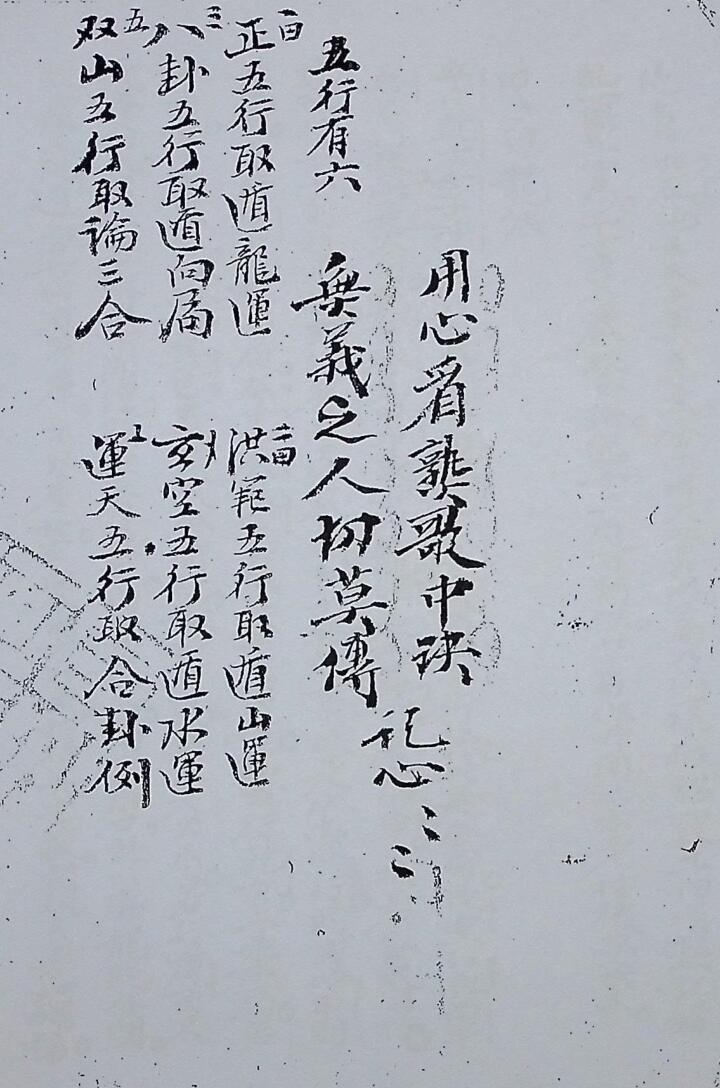 用心看熟歌中訣
無義之人切莫傳
記心
五行有六
正五行取遁龍運
洪範五行取遁山運
八卦五行取遁向局
玄空五行取遁水運
双山五行取論三合
運天五行取合卦例